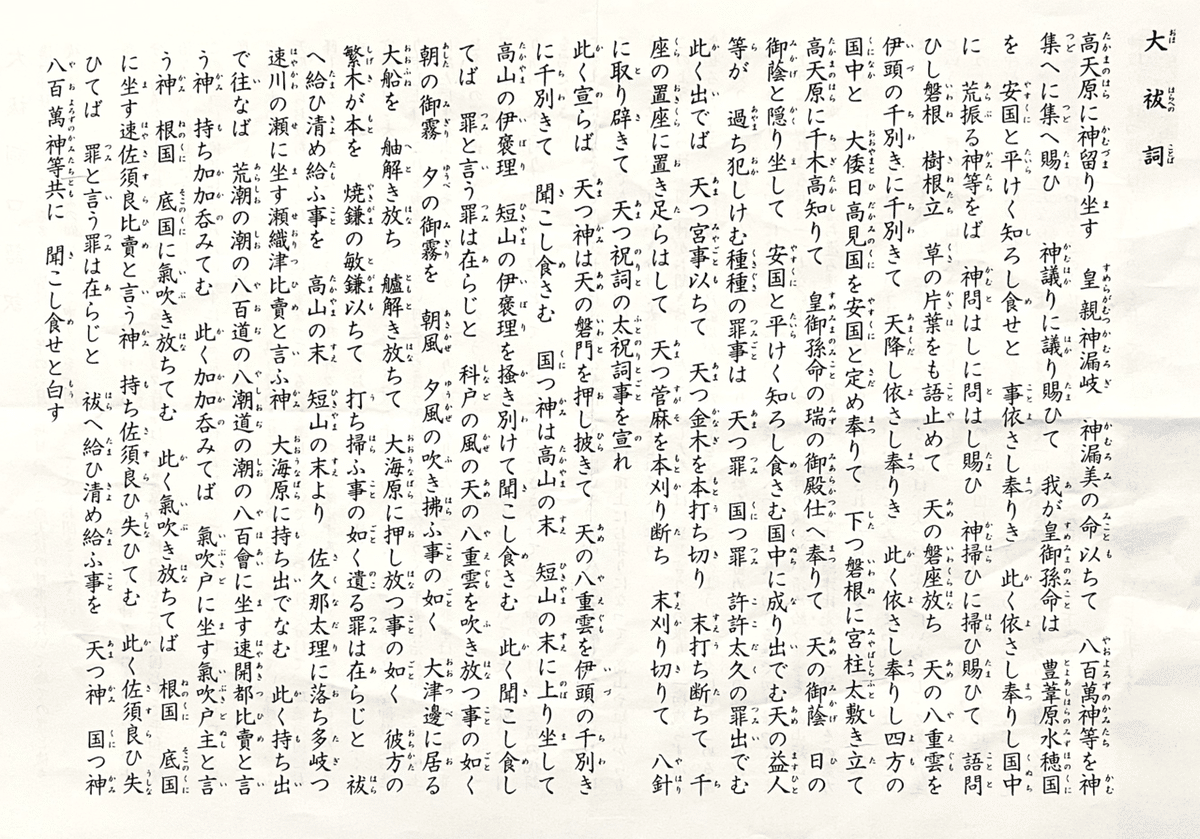 大祓詞
高天原に神留り坐す　皇親神漏岐　神漏美の命以ちて　八百萬神等を神
集へに集へ賜ひ　神議りに議り賜ひて　我が皇御孫命は　豊葦原水穂国
を　安国と平けく知ろし食せと　事依さし奉りき　此く依さし奉りし国中
に　荒振る神等をば　神問はしに問はし賜ひ　神掃ひに掃ひ賜ひて　語問
ひし磐根　樹根立　草の片葉をも語止めて　天の磐座放ち　天の八重雲を
伊頭の千別きに千別きて　天降し依さし奉りき　此く依さし奉りし四方の
国中と　大倭日高見国を安国と定め奉りて　下つ磐根に宮柱太敷き立て
高天原に千木高知りて　皇御孫命の瑞の御殿仕へ奉りて　天の御蔭　日の
御蔭と隠り坐して　安国と平けく知ろし食さむ国中に成り出でむ天の益人
等が　過ち犯しけむ種種の罪事は　天つ罪　国つ罪　許許太久の罪出でむ
此く出でば　天つ宮事以ちて　天つ金木を本打ち切り　末打ち断ちて　千
座の置座に置き足らはして　天つ菅麻を本刈り断ち　末刈り切りて　八針
に取り辟きて　天つ祝詞の太祝詞事を宣れ
此く宣らば　天つ神は天の磐門を押し披きて　天の八重雲を伊頭の千別き
に千別きて　聞こし食さむ　国つ神は高山の末　短山の末に上り坐して
高山の伊褒理　短山の伊褒理を掻き別けて聞こし食さむ　此く聞こし食し
てば　罪と言う罪は在らじと　科戸の風の天の八重雲を吹き放つ事の如く
朝の御霧　夕の御霧を　朝風　夕風の吹き拂ふ事の如く　大津邊に居る
大船を　舳解き放ち　艫解き放ちて　大海原に押し放つ事の如く　彼方の
繁木が本を　焼鎌の敏鎌以ちて　打ち掃ふ事の如く遺る罪は在らじと　祓
へ給ひ清め給ふ事を　高山の末　短山の末より　佐久那太理に落ち多岐つ
速川の瀬に坐す瀬織津比賣と言ふ神　大海原に持ち出でなむ　此く持ち出
で往なば　荒潮の潮の八百道の八潮道の潮の八百會に坐す速開都比賣と言
う神　持ち加加呑みてむ　此く加加呑みてば　氣吹戸に坐す氣吹戸主と言
う神　根国　底国に氣吹き放ちてむ　此く氣吹き放ちてば　根国　底国
に坐す速佐須良比賣と言う神　持ち佐須良ひ失ひてむ　此く佐須良ひ失
ひてば　罪と言う罪は在らじと　祓へ給ひ清め給ふ事を　天つ神　国つ神
八百萬神等共に　聞こし食せと白す